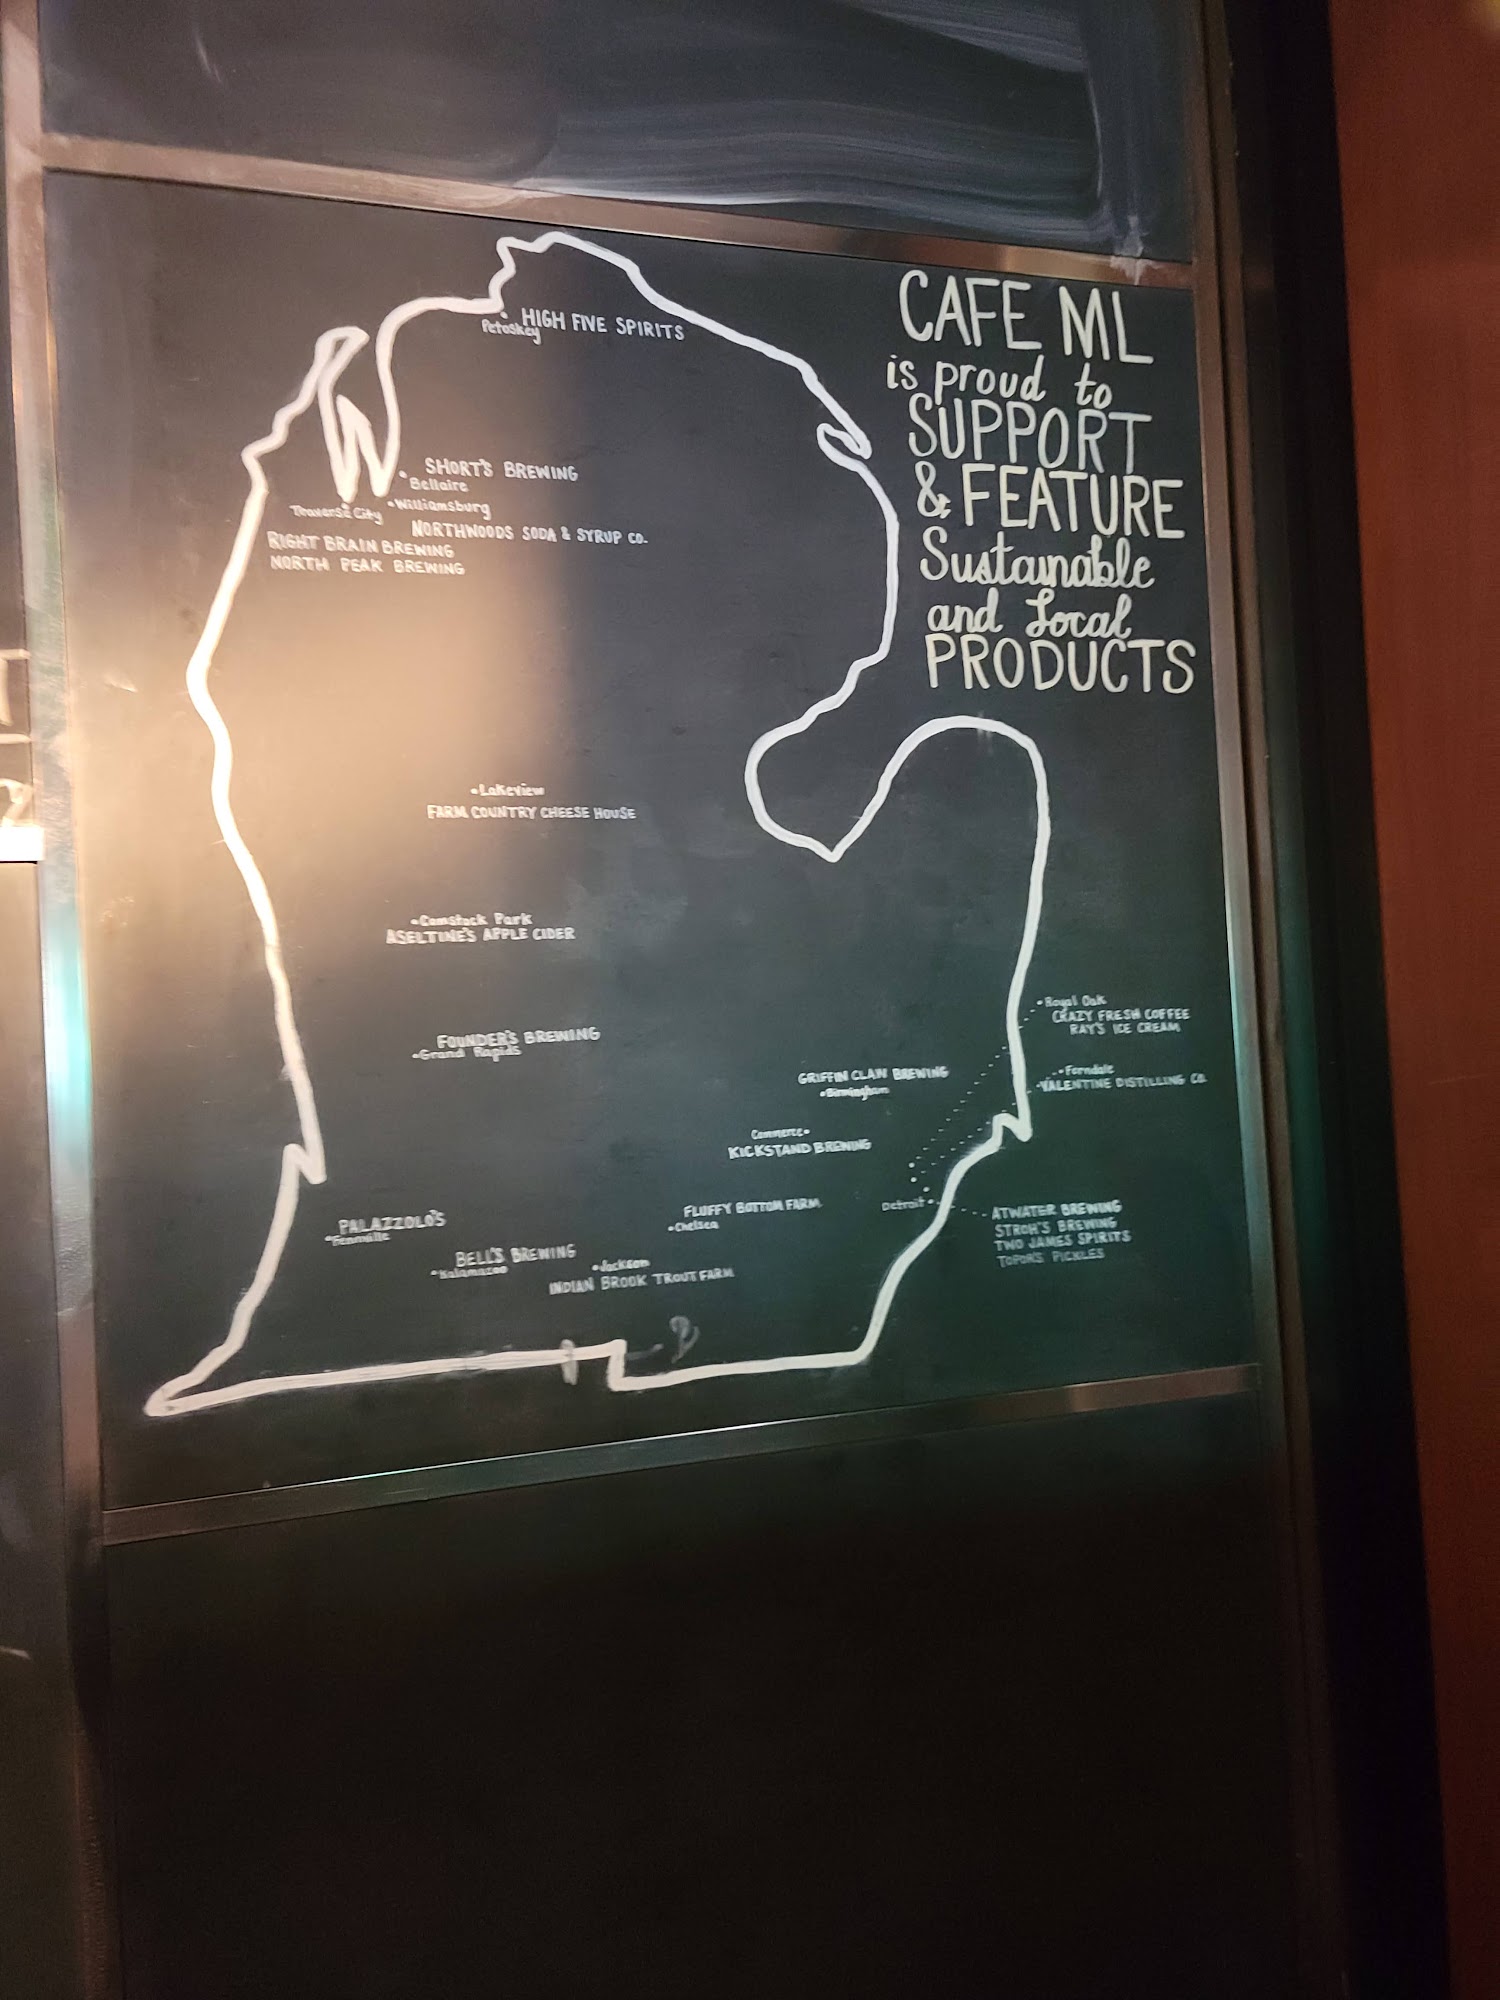 CAFE ML
is proud to
SUPPORT
& FEATURE
Sustainable
and Local
PRODUCTS
HIGH FIVE SPIRITS
Petoskey
SHORT'S BREWING
Bellaire
Williamsburg
NORTHWOODS SODA & SYRUP CO.
Traverse City
RIGHT BRAIN BREWING
NORTH PEAK BREWING
Lakeview
FARM COUNTRY CHEESE HOUSE
Comstock Park
ASELTINE'S APPLE CIDER
FOUNDER'S BREWING
Grand Rapids
Royal Oak
CRAZY FRESH COFFEE
RAY'S ICE CREAM
Ferndale
VALENTINE DISTILLING CO.
GRIFFIN CLAW BREWING
Birmingham
Commerce
KICKSTAND BREWING
FLUFFY BOTTOM FARM
Chelsea
Detroit
ATWATER BREWING
STROH'S BREWING
TWO JAMES SPIRITS
TOPOR'S PICKLES
PALAZZOLO'S
Fennville
BELL'S BREWING
Kalamazoo
Jackson
INDIAN BROOK TROUT FARM